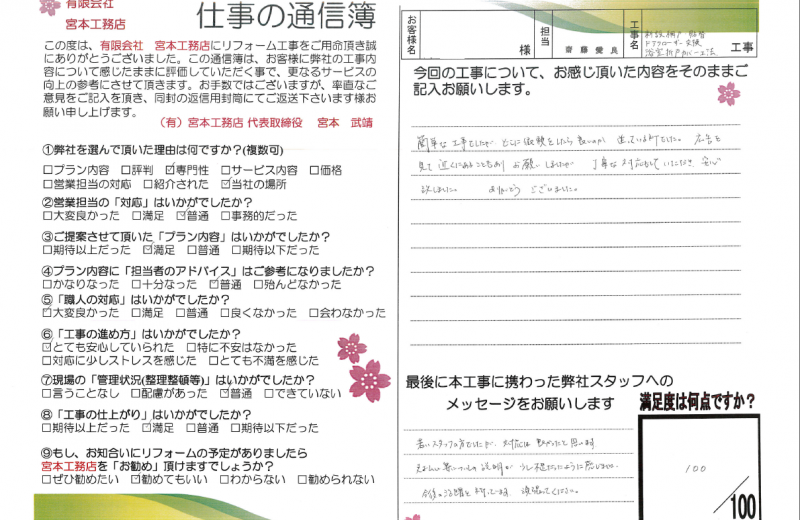 有限会社
宮本工務店
仕事の通信簿
この度は、有限会社 宮本工務店にリフォーム工事をご用命頂き誠
にありがとうございました。この通信簿は、お客様に弊社の工事内
容について感じたままに評価していただく事で、更なるサービスの
向上の参考にさせて頂きます。お手数ではございますが、率直なご
意見をご記入を頂き、同封の返信用封筒にてご返送下さいます様お
願い申し上げます。
(有)宮本工務店 代表取締役 宮本 武靖
①弊社を選んで頂いた理由は何ですか?(複数可)
□プラン内容 □評判 ☑専門性 □サービス内容 □価格
□営業担当の対応 □紹介された ☑当社の場所
②営業担当の「対応」はいかがでしたか?
□大変良かった □満足 ☑普通 □事務的だった
③ご提案させて頂いた「プラン内容」はいかがでしたか?
□期待以上だった ☑満足 □普通 □期待以下だった
④プラン内容に「担当者のアドバイス」はご参考になりましたか?
□かなりなった □十分なった ☑普通 □殆んどなかった
⑤「職人の対応」はいかがでしたか?
☑大変良かった □満足 □普通 □良くなかった □会わなかった
⑥「工事の進め方」はいかがでしたか?
☑とても安心していられた □特に不安はなかった
□対応に少しストレスを感じた □とても不満を感じた
⑦現場の「管理状況(整理整頓等)」はいかがでしたか?
□言うことなし □配慮があった ☑普通 □できていない
⑧「工事の仕上がり」はいかがでしたか?
□期待以上だった ☑満足 □普通 □期待以下だった
⑨もし、お知合いにリフォームの予定がありましたら
宮本工務店を「お勧め」頂けますでしょうか?
□ぜひ勧めたい ☑勧めてもいい □わからない □勧められない
お客様名 様 担当 齋藤 愛良 工事名 工事
今回の工事について、お感じ頂いた内容をそのままご
記入お願いします。
簡単な工事でしたが どこに依頼をしたら良いのか 迷っている所でした。広告を
見て 近くにあることもあり お願いしましたが 丁寧な対応をしていただき、安心
致しました。 ありがとう ございました。
最後に本工事に携わった弊社スタッフへの
メッセージをお願いします
若いスタッフの方でしたが、対応は 良かったと思います
今後の活躍を 期待しています 頑張ってください。
満足度は何点ですか?
100
/100